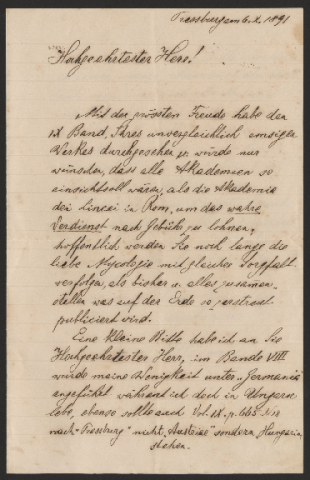 Pressburg am 6. X. 1891
Hochgeehrtester Herr!
Mit der grössten Freude habe den
IX Band, Ihres unvergleichlich emsigen
Werkes durchgesehen u. würde nur
wünschen, dass alle Akademien so
einsichtsvoll wären, als die Akademie
dei Lincei in Rom, um das wahre
Verdienst nach Gebühr zu lohnen,
hoffentlich werden Sie noch lange die
liebe Mycologie mit gleicher Sorgfalt
verfolgen, als bisher u. alles zusamen-
stellen was auf der Erde so zerstreut
publiciert wird.
Eine kleine Bitte hab ich an Sie
Hochgeehrtester Herr, im Bande VIII
wurde meine Wenigkeit unter „Germania"
angeführt während ich doch in Ungarn
lebe, ebenso sollte auch Vol. IX. p. 665
nach „Pressburg" nicht „Austriae" sondern Hungariae
stehen.